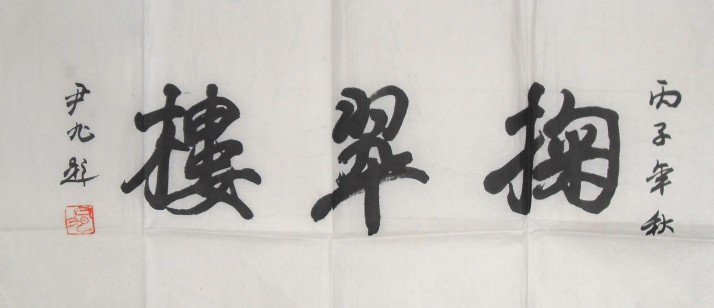 丙子年秋
掬翠樓
尹旭題